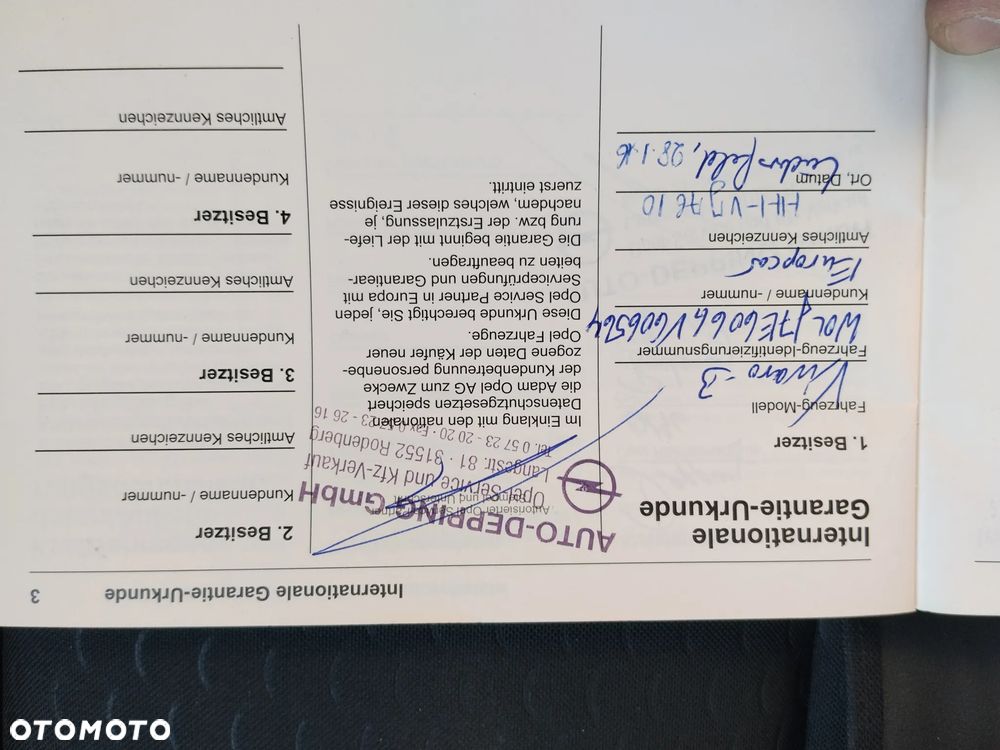 Internationale Garantie-Urkunde 3
Internationale
Garantie-Urkunde
1. Besitzer
Fahrzeug-Modell
Vivaro-B
Fahrzeug-Identifizierungsnummer
Kundenname / -nummer
Europcar
Amtliches Kennzeichen
Ort, Datum
28.1.16
AUTO-DEPPING GmbH
Opel-Service und Kfz-Verkauf
Langestr. 81 · 31552 Rodenberg
Tel. 0 57 23 - 20 20 · Fax 0 57 23 - 26 16
Autorisierter Opel Service Partner
Im Einklang mit den nationalen
Datenschutzgesetzen speichert
die Adam Opel AG zum Zwecke
der Kundenbetreuung personenbe-
zogene Daten der Käufer neuer
Opel Fahrzeuge.
Diese Urkunde berechtigt Sie, jeden
Opel Service Partner in Europa mit
Serviceprüfungen und Garantiear-
beiten zu beauftragen.
Die Garantie beginnt mit der Liefe-
rung bzw. der Erstzulassung, je
nachdem, welches dieser Ereignisse
zuerst eintritt.
2. Besitzer
Kundenname / -nummer
Amtliches Kennzeichen
3. Besitzer
Kundenname / -nummer
Amtliches Kennzeichen
4. Besitzer
Kundenname / -nummer
Amtliches Kennzeichen
OTOMOTO